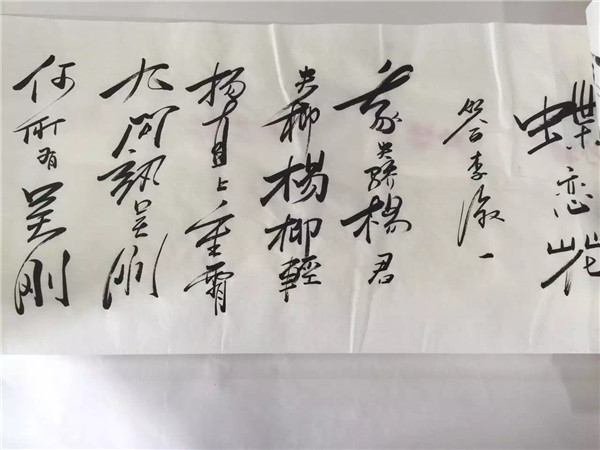 蝶恋花
答李淑一
我失骄楊君
失柳楊柳輕
扬直上重霄
九问訊吴刚
何所有吴刚